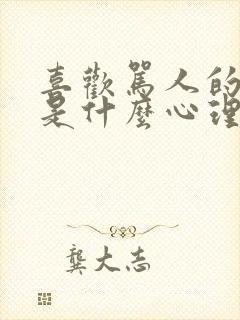 喜歡罵人的
是什麼心理
龔大志